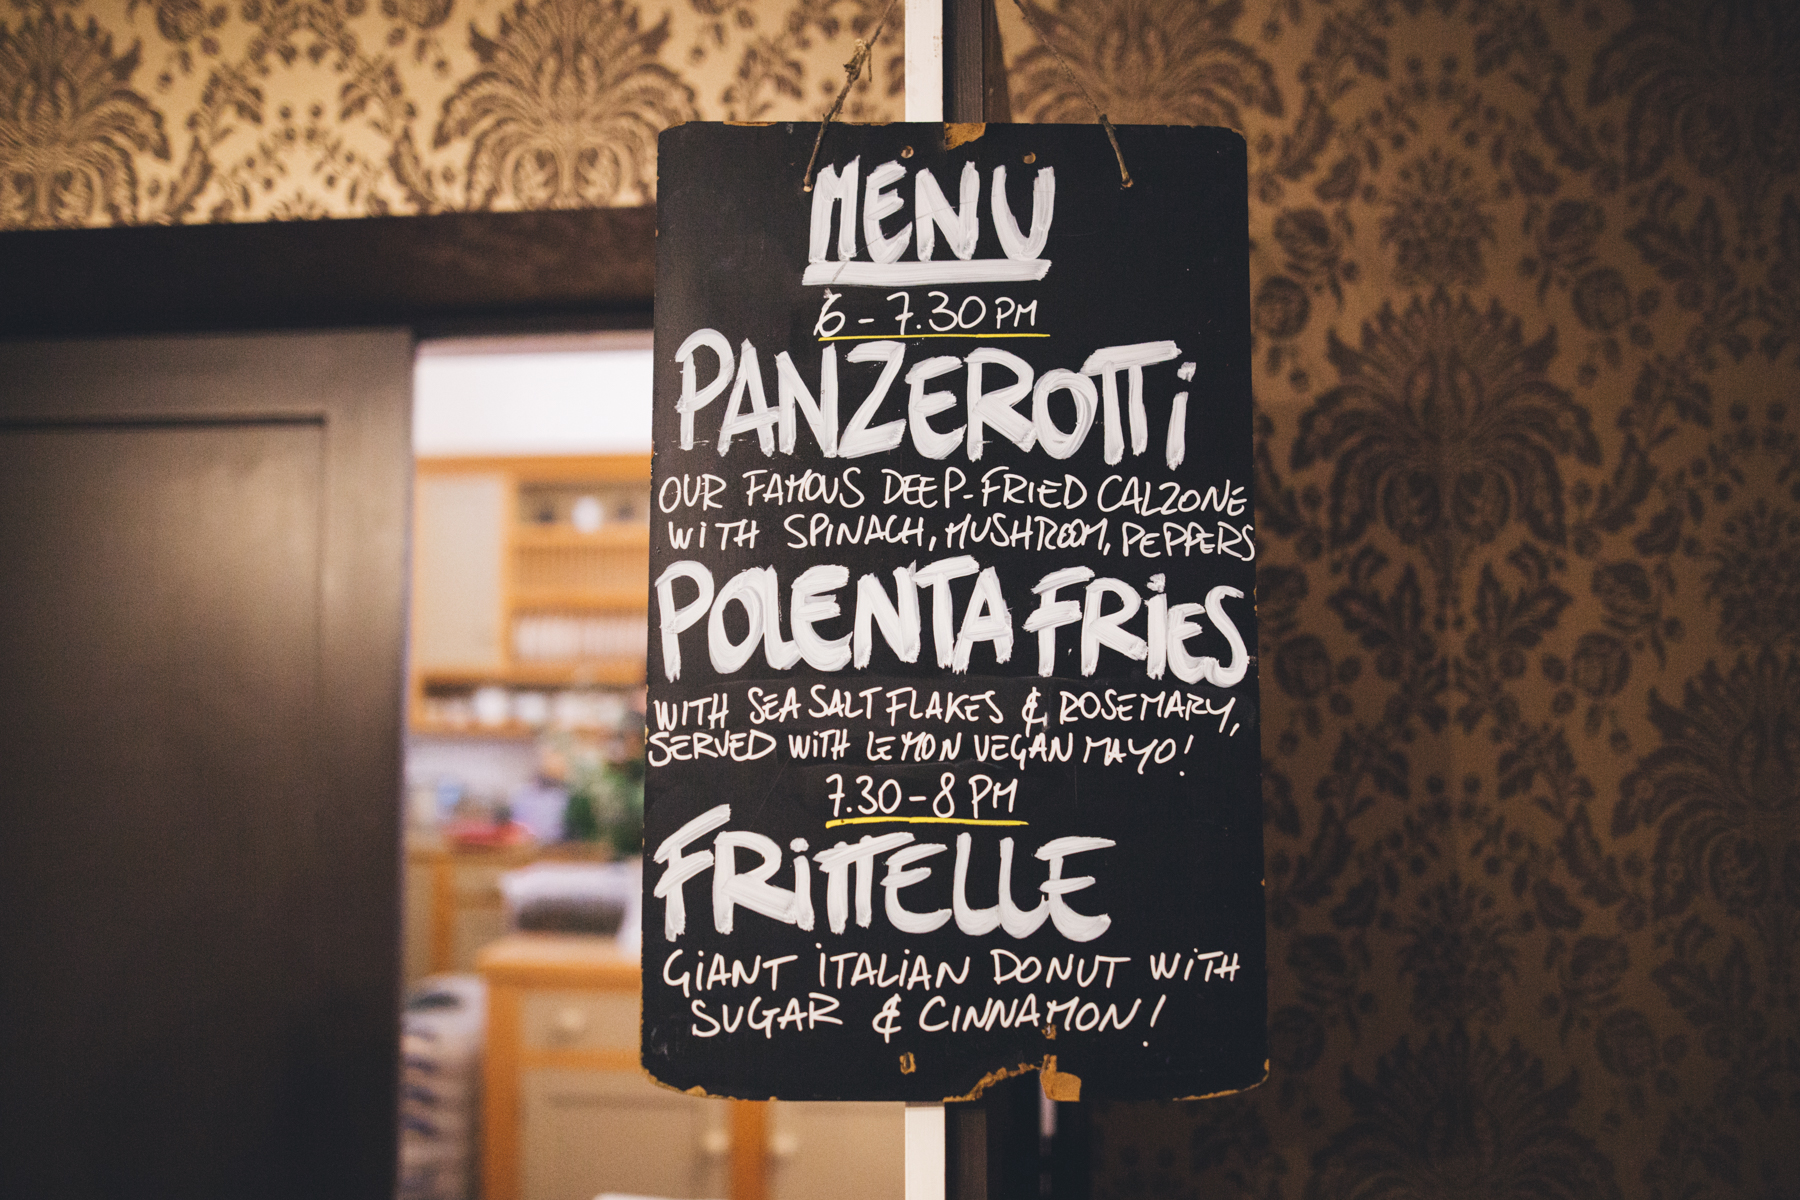 MENU
6 - 7.30 PM
PANZEROTTi
OUR FAMOUS DEEP-FRIED CALZONE
WiTH SPINACH, MUSHROOM, PEPPERS
POLENTA FRiES
WITH SEA SALT FLAKES & ROSEMARY,
SERVED WiTH LEMON VEGAN MAYO!
7.30 - 8 PM
FRiTTELLE
GiANT iTALiAN DONUT WiTH
SUGAR & CINNAMON!